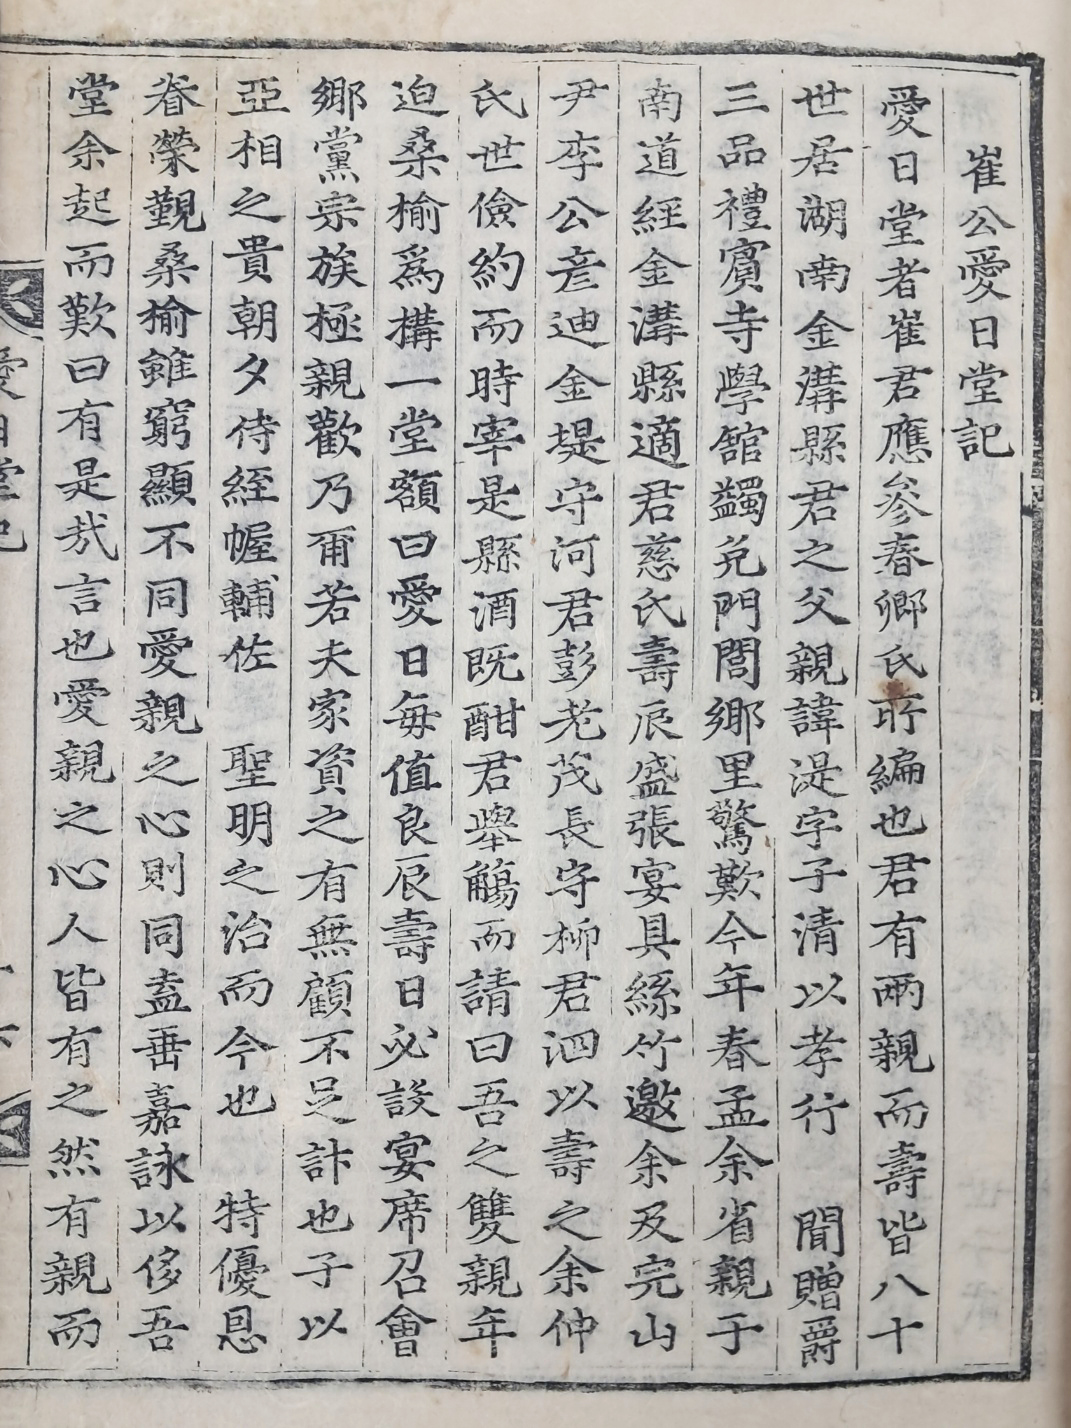 崔公愛日堂記
愛日堂者崔君應參春卿氏所編也君有兩親而壽皆八十
世居湖南金溝縣君之父親諱湜字子清以孝行　聞贈爵
三品禮賓寺學舘蠲免門閭鄉里驚歎今年春孟余省親于
南道經金溝縣適君慈氏壽辰盛張宴具絲竹邀余及完山
尹李公彦迪金堤守河君彭老茂長守柳君泗以壽之余仲
氏世儉約而時宰是縣酒既酣君舉觴而請曰吾之雙親年
迫桑楡爲構一堂額曰愛日每值良辰壽日必設宴席召會
鄉黨宗族極親歡乃爾若夫家資之有無顧不足計也子以
亞相之貴朝夕侍經幄輔佐　聖明之治而今也　特優恩
眷榮觀桑楡雖窮顯不同愛親之心則同盍垂嘉詠以侈吾
堂余起而歎曰有是哉言也愛親之心人皆有之然有親而
愛日堂記